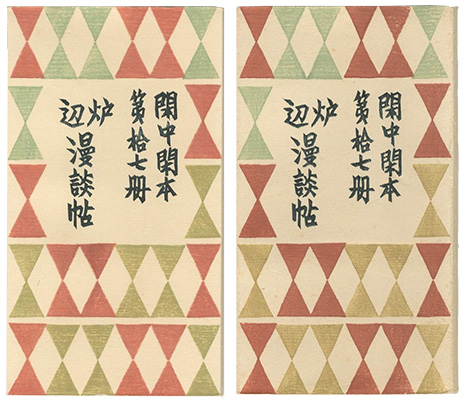 閑中閑本
第拾七册
炉辺
漫談帖
閑中閑本
第拾七册
炉辺
漫談帖